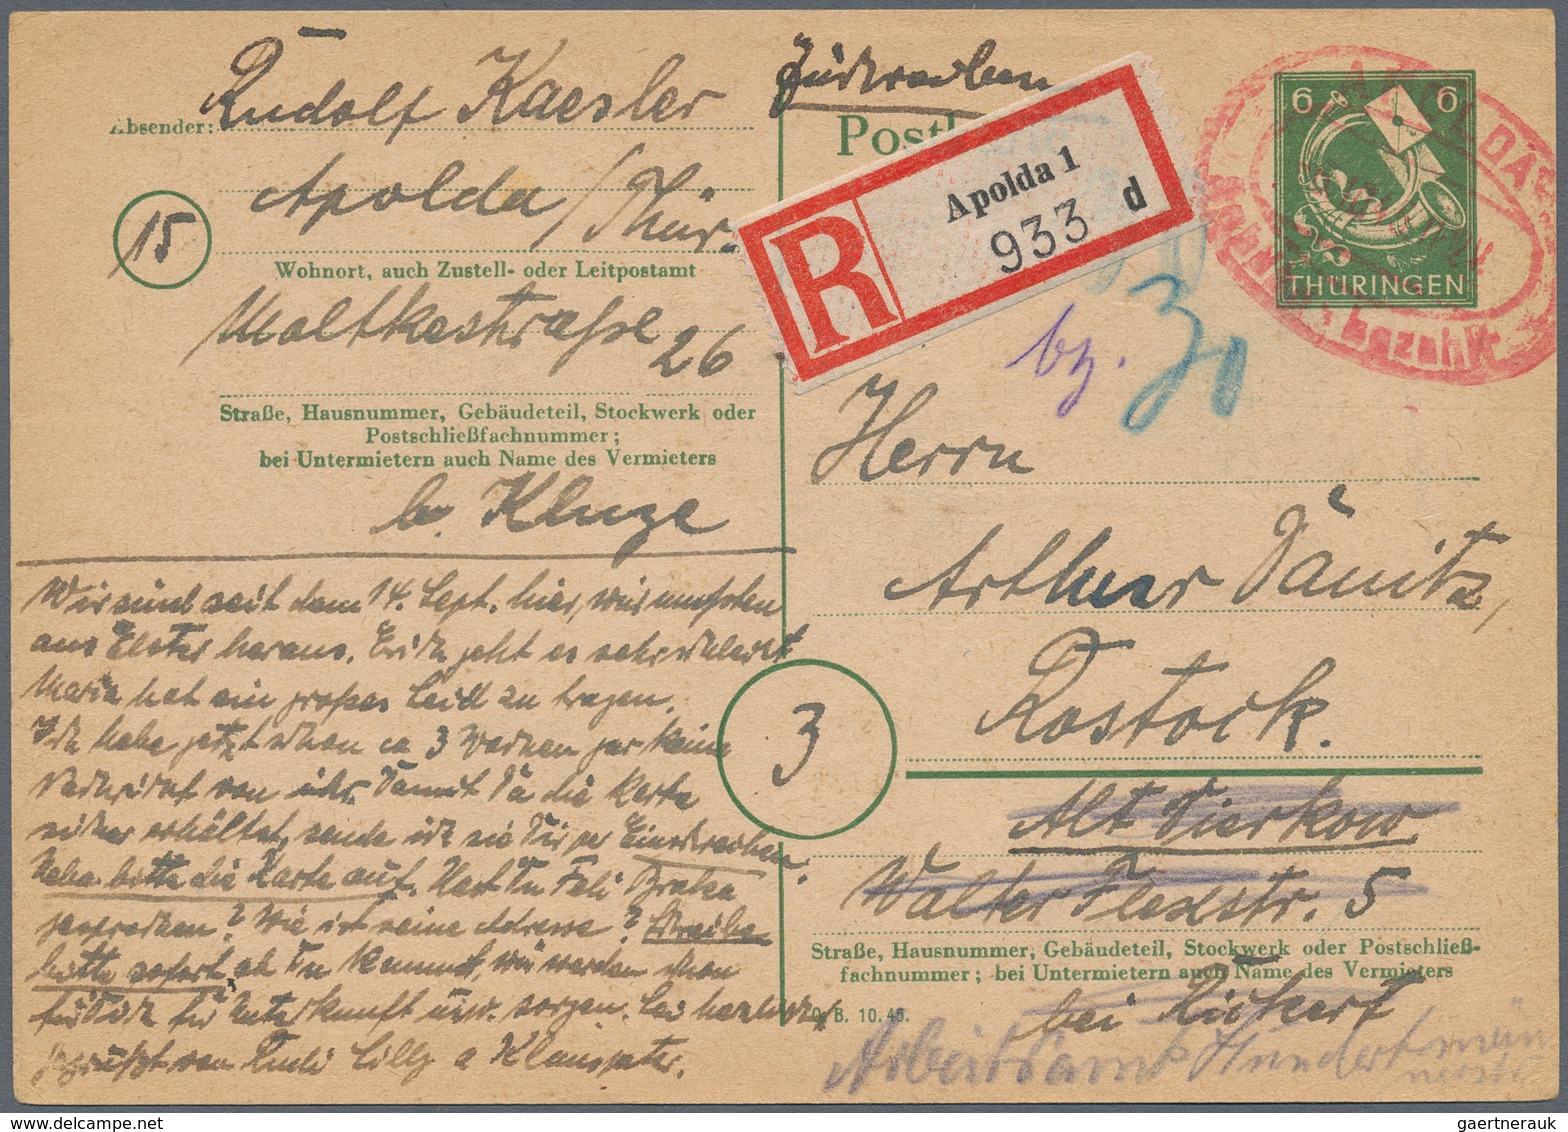 Rudolf Kaesler
Absender:
Apolda / Thür.
15
Wohnort, auch Zustell- oder Leitpostamt
Moltkestraße
26
Straße, Hausnummer, Gebäudeteil, Stockwerk oder
Postschließfachnummer;
bei Untermietern auch Name des Vermieters
b. Kluge
Wir sind seit dem 14. Sept. hier, wir mußten
aus Elster heraus. Erich geht es sehr schlecht
Maria hat ein großes Leid zu tragen.
Ich habe jetzt schon ca 3 Wochen gar keine
Nachricht von ihr. Damit Du die Karte
sicher erhältst, sende ich sie Dir per Einschreiben.
Hebe bitte die Karte auf. Hast Du
gesprochen? Wie ist seine Adresse? Schreibe
bitte sofort, ob Du kommst, wir werden schon
für Dich für Unterkunft usw. sorgen. Sei herzlichst
gegrüßt von Rudi Lilly u Klauspeter.
Einschreiben
Postk
R
Apolda 1
933 d
bz. 30
6 6
THÜRINGEN
bezahlt
Herrn
Arthur Dänitz,
Rostock.
3
Alt Dierkow
Walter Flexstr. 5
Straße, Hausnummer, Gebäudeteil, Stockwerk oder Postschließ-
fachnummer; bei Untermietern auch Name des Vermieters
B. 10. 45.
bei Rückert
Arbeitsamt
gaertnerauk / delcampe.net